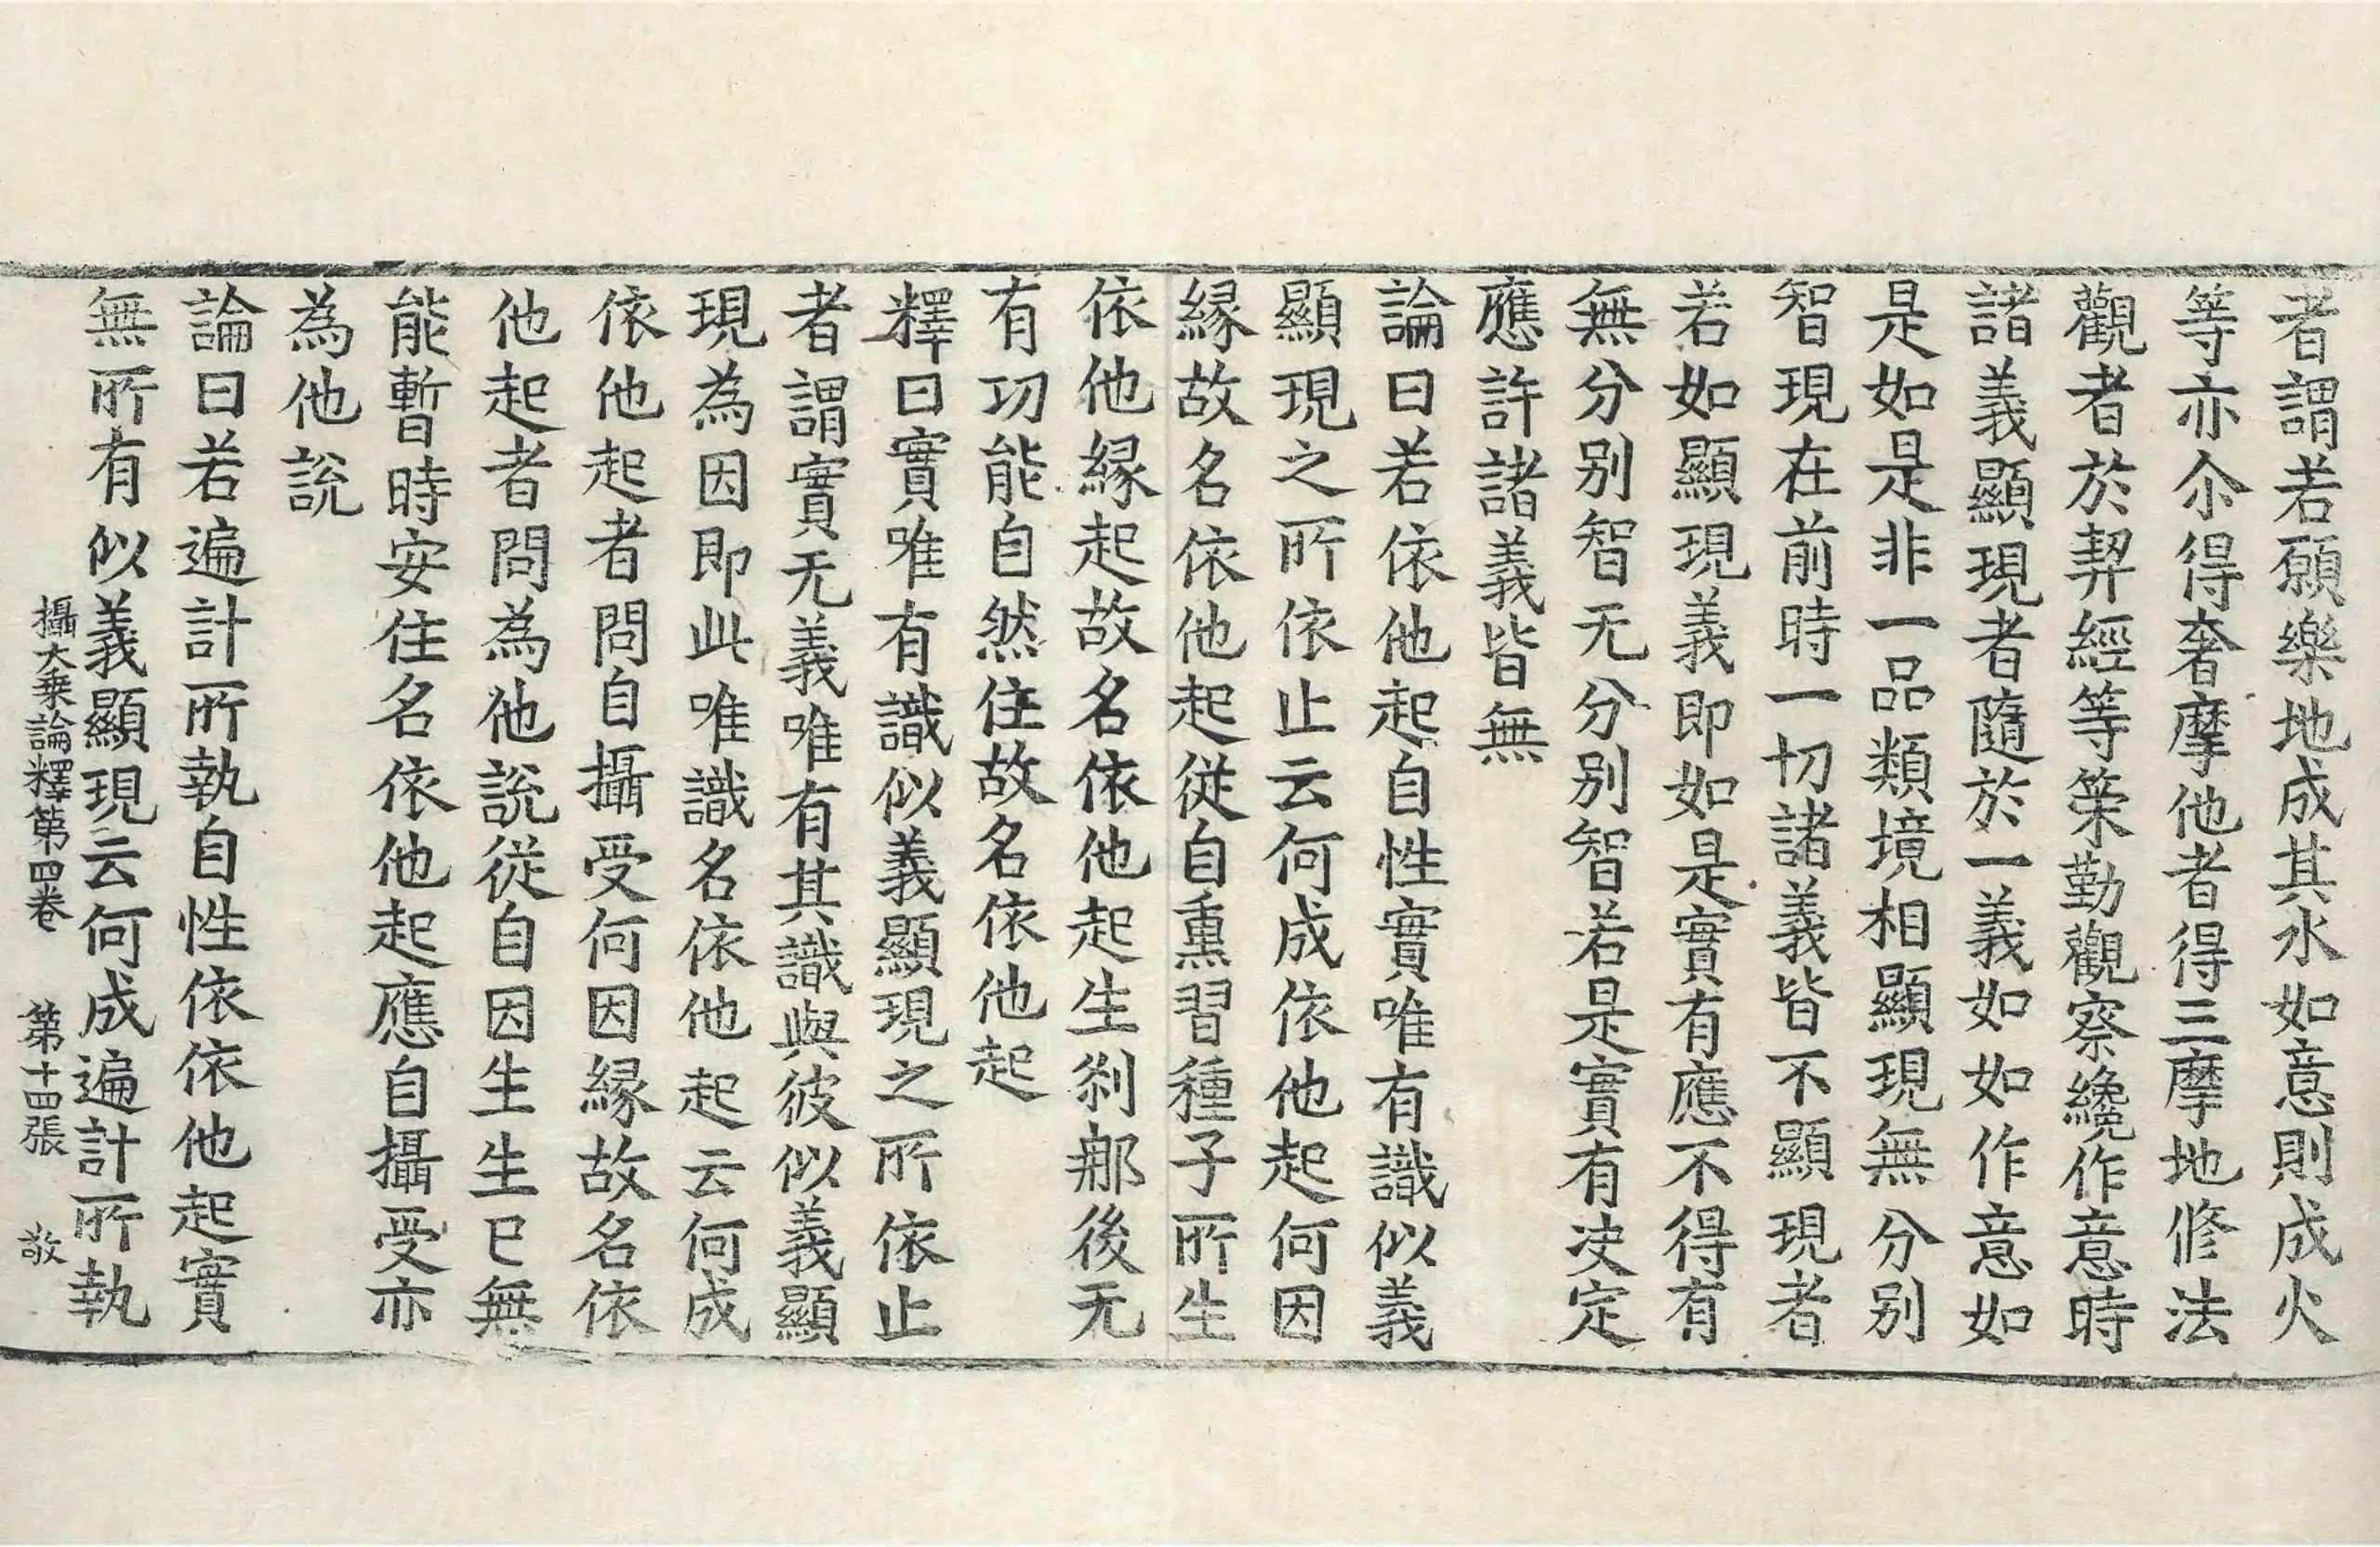 者謂若願樂地成其水如意則成火
等亦尒得奢摩他者得三摩地修法
觀者於契經等策勤觀察纔作意時
諸義顯現者隨於一義如如作意如
是如是非一品類境相顯現無分别
智現在前時一切諸義皆不顯現者
若如顯現義即如是實有應不得有
無分别智无分别智若是實有决定
應許諸義皆無
論曰若依他起自性實唯有識似義
顯現之所依止云何成依他起何因
縁故名依他起從自熏習種子所生
依他縁起故名依他起生刹那後无
有功能自然住故名依他起
釋曰實唯有識似義顯現之所依止
者謂實无義唯有其識與彼似義顯
現為因即此唯識名依他起云何成
依他起者問自攝受何因縁故名依
他起者問為他說從自因生生已無
能暫時安住名依他起應自攝受亦
為他說
論曰若遍計所執自性依依他起實
無所有似義顯現云何成遍計所執
攝大乗論釋第四卷　第十四張　敬